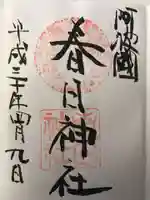 阿波國
春日神社
平成三十年四月九日